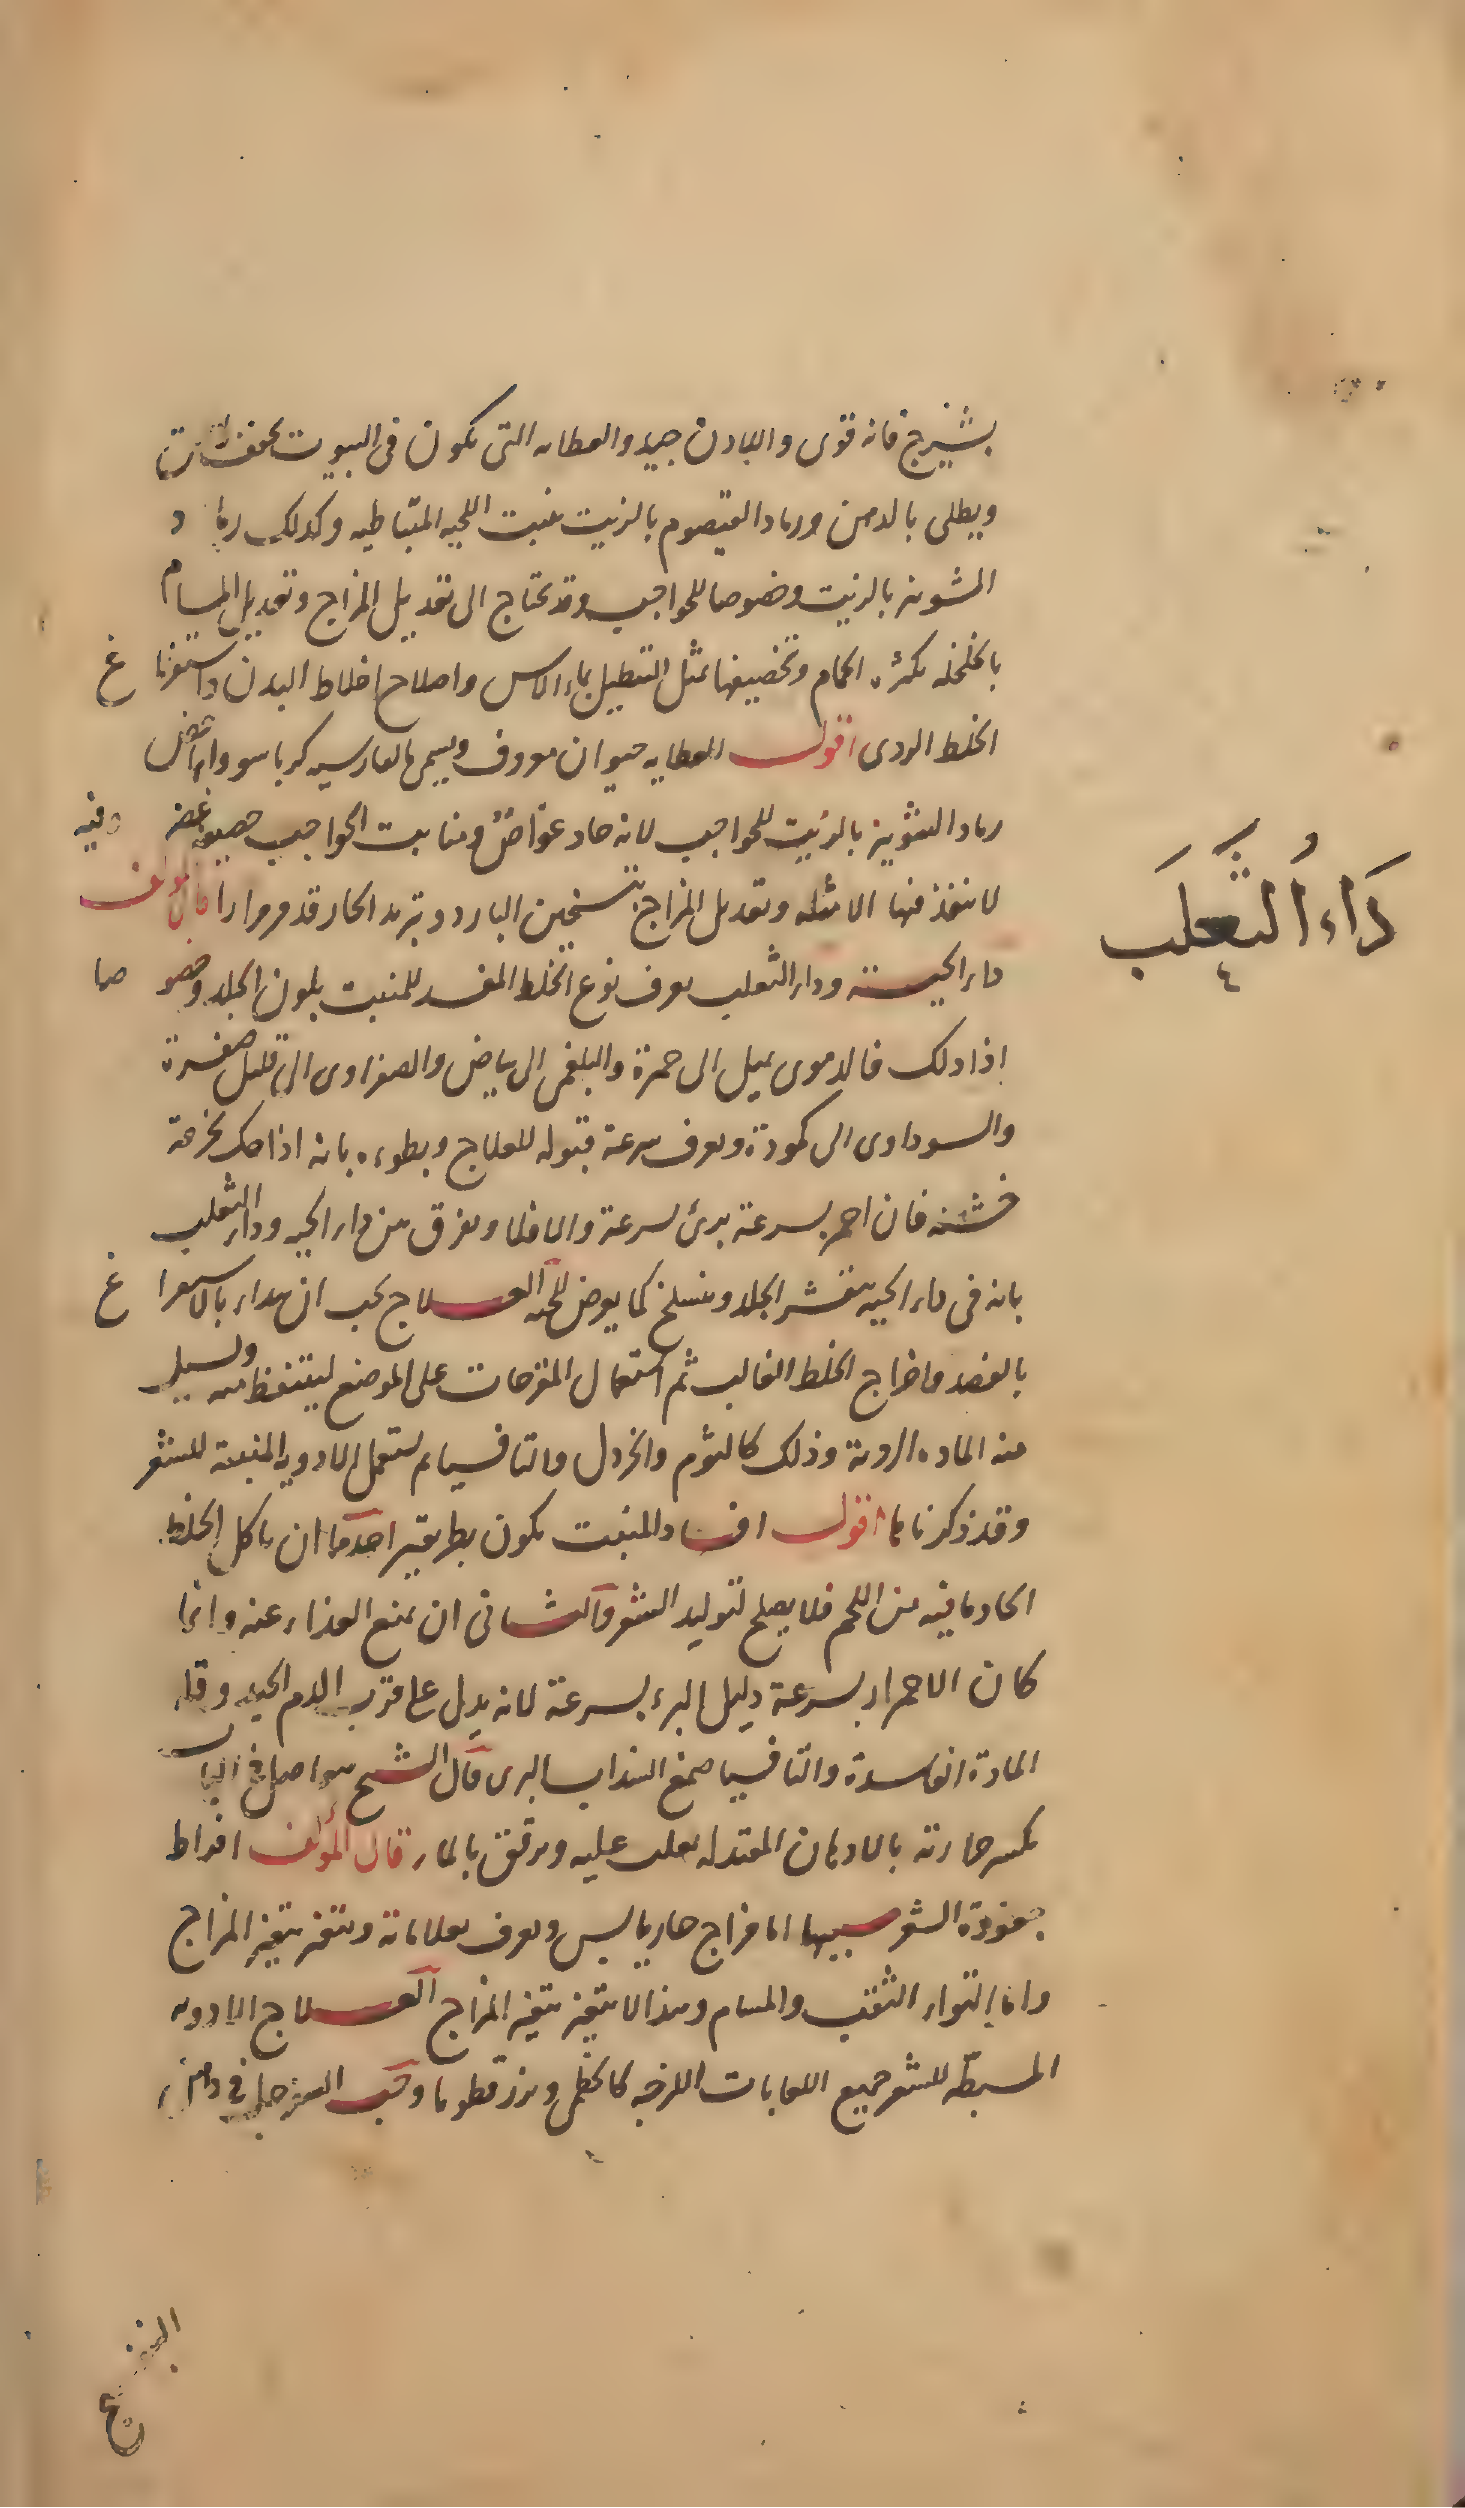 بشيرج فانه قوى واللادن جيد والعطايه التى تكون فى البيوت تجفف
ويطلى بالدهن ورماد القيصوم بالزيت ينبت اللحيه المتباطيه وكذلك رماد
الشونيز بالزيت وخصوصا للحواجب وقد تحتاج الى تعديل المزاج وتعديل المسام
بالخلخله بكثره الحمام وتخصيفها بمثل التنطيل بماء الاس واصلاح اخلاط البدن واستفراغ
الخلط الردى اقول العطايه حيوان معروف ويسمى بالفارسيه كرباسو وانما خص
رماد الشونيز بالزيت للحواجب لانه حاد غواض ومنابت الحواجب
لا ينفذ فيها الا مثله وتعديل المزاج بتسخين البارد وتبريد الحار قد مر مرارا قال المولف
داء الحية وداء الثعلب يعرف نوع الخلط المفسد للمنبت بلون الجلد وخصوصا
اذا دلك فالدموى يميل الى حمرة والبلغمى الى بياض والصفراوى الى قليل صفرة
والسوداوى الى كمودة ويعرف سرعة قبوله للعلاج وبطوءه بانه اذا حك بخرقة
خشنه فان احمر بسرعة برئ بسرعة والا فلا ويفرق بين داء الحيه وداء الثعلب
بانه فى داء الحيه يتقشر الجلد وينسلخ كما يعرض للحيه العلاج يجب ان يبداء بالاستفراغ
بالفصد واخراج الخلط الغالب ثم استعمال المقرحات على الموضع ليتنفط منه ويسيل
منه الماده الردية وذلك كالثوم والخردل والتافسيا ثم يستعمل الادويه المنبتة للشعر
وقد ذكرناها اقول افساد المنبت يكون بطريقين احدهما ان ياكل الخلط
الحاد ما فيه من اللحم فلا يصلح لتوليد الشعر والثانى ان يمنع الغذاء عنه وانما
كان الاحمرار بسرعة دليل البرء بسرعة لانه يدل على قرب الدم الجيد وقلة
المادة الفاسدة والتافسيا صمغ السذاب البرى قال الشيخ هو اصل فى الباب
يكسر حدته بالادهان المعتدله يغلب عليه ويرقق بالماء قال المولف افراط
جعودة الشعر سببها اما مزاج حار يابس ويعرف بعلاماته ويتغير بتغير المزاج
واما التواء الثقب والمسام وهذا لا يتغير بتغير المزاج العلاج الادويه
المسبطه للشعر جميع اللعابات اللزجه كالخطمى وبزر قطونا وحب السفرجل فى دهن
دَاءُ الثَّعلَب
البنفسج